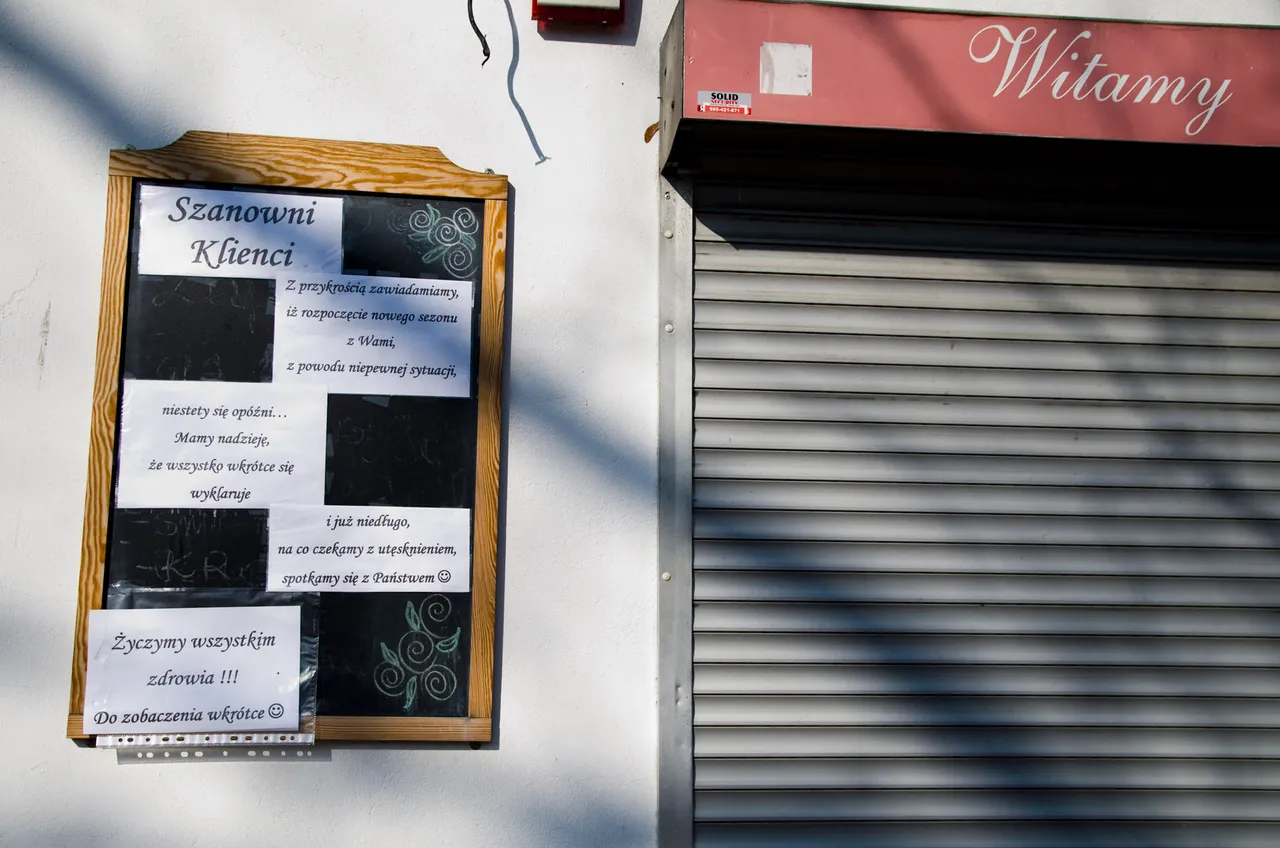 Witamy
SOLID
SECURITY
Szanowni
Klienci
Z przykrością zawiadamiamy,
iż rozpoczęcie nowego sezonu
z Wami,
z powodu niepewnej sytuacji,
niestety się opóźni…
Mamy nadzieję,
że wszystko wkrótce się
wyklaruje
i już niedługo,
na co czekamy z utęsknieniem,
spotkamy się z Państwem ☺
Życzymy wszystkim
zdrowia !!!
Do zobaczenia wkrótce ☺